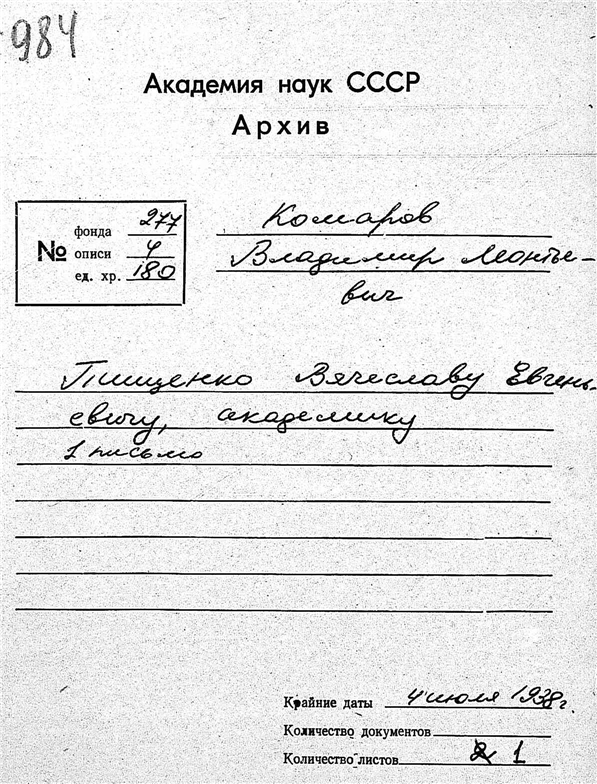 984
Академия наук СССР
Архив
№ фонда 277
описи 4
ед. хр. 180
Комаров
Владимир Леонтье-
вич
Тищенко Вячеславу Евгень-
евичу, академику
1 письмо
Крайние даты 4 июля 1938 г.
Количество документов
Количество листов 1